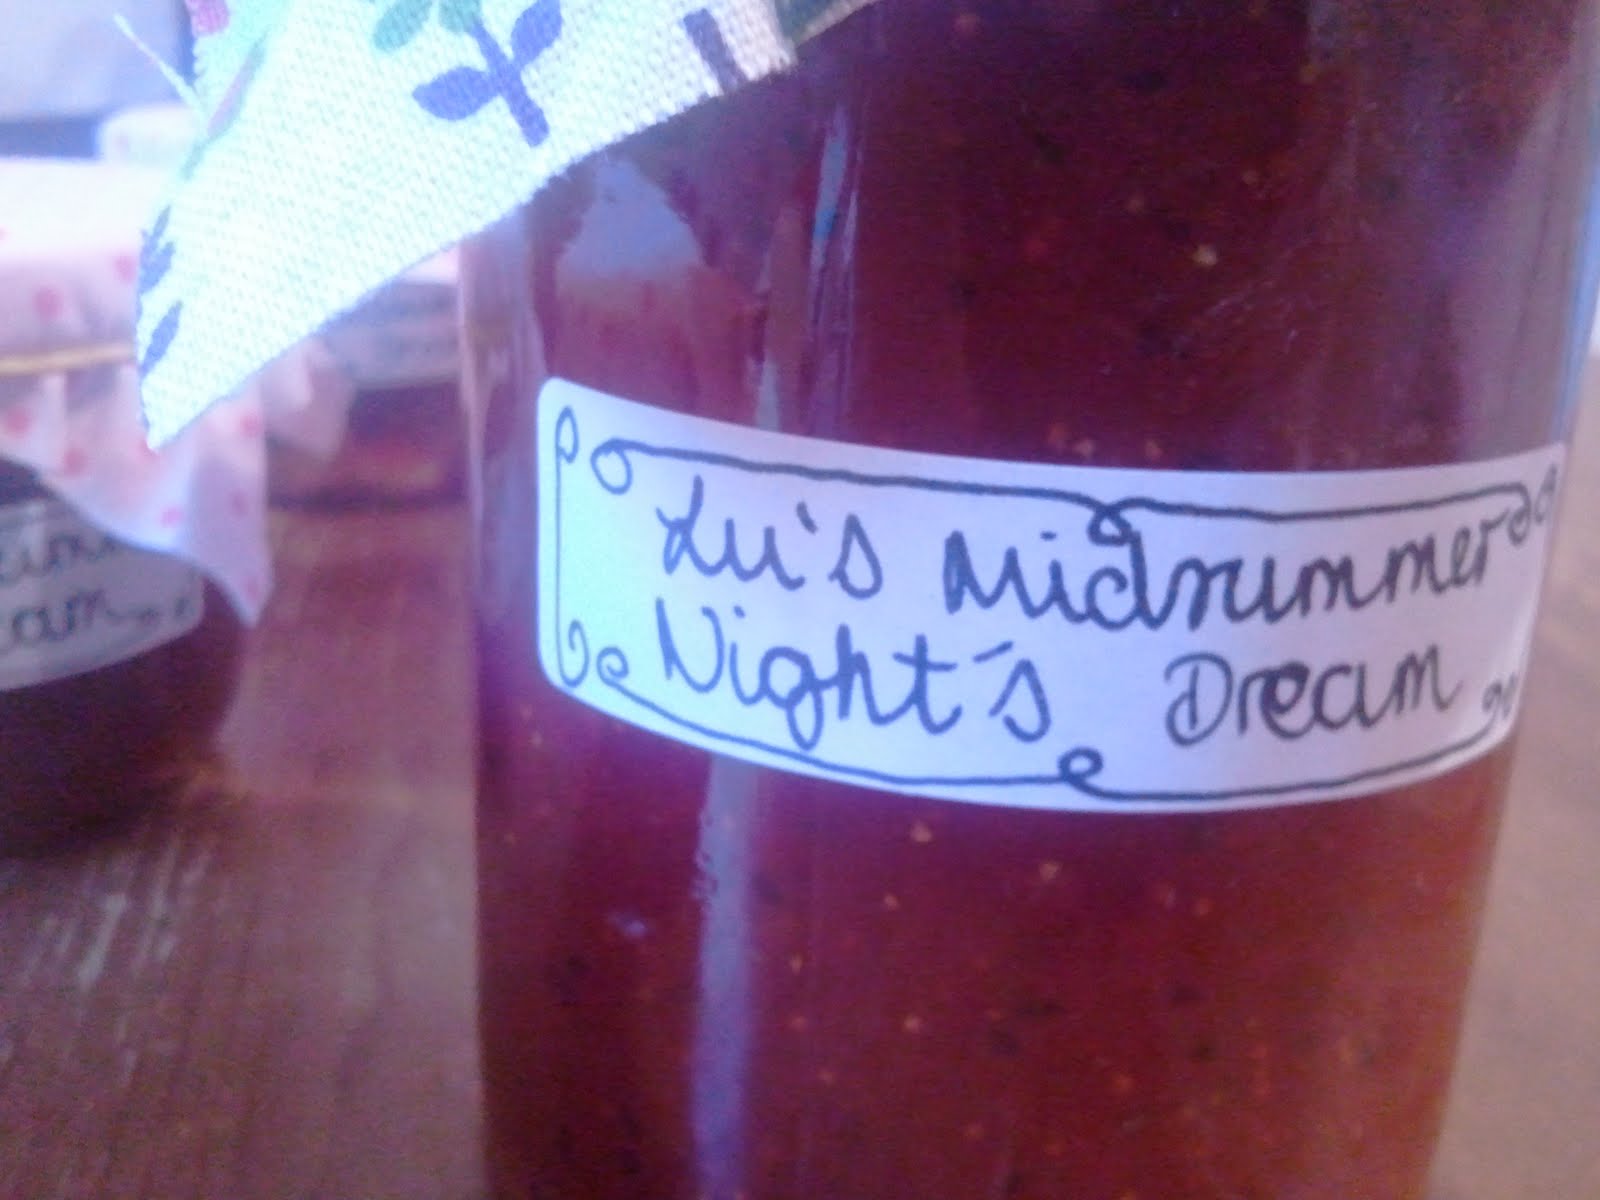 Lu's Midsummer
Night´s Dream
eam